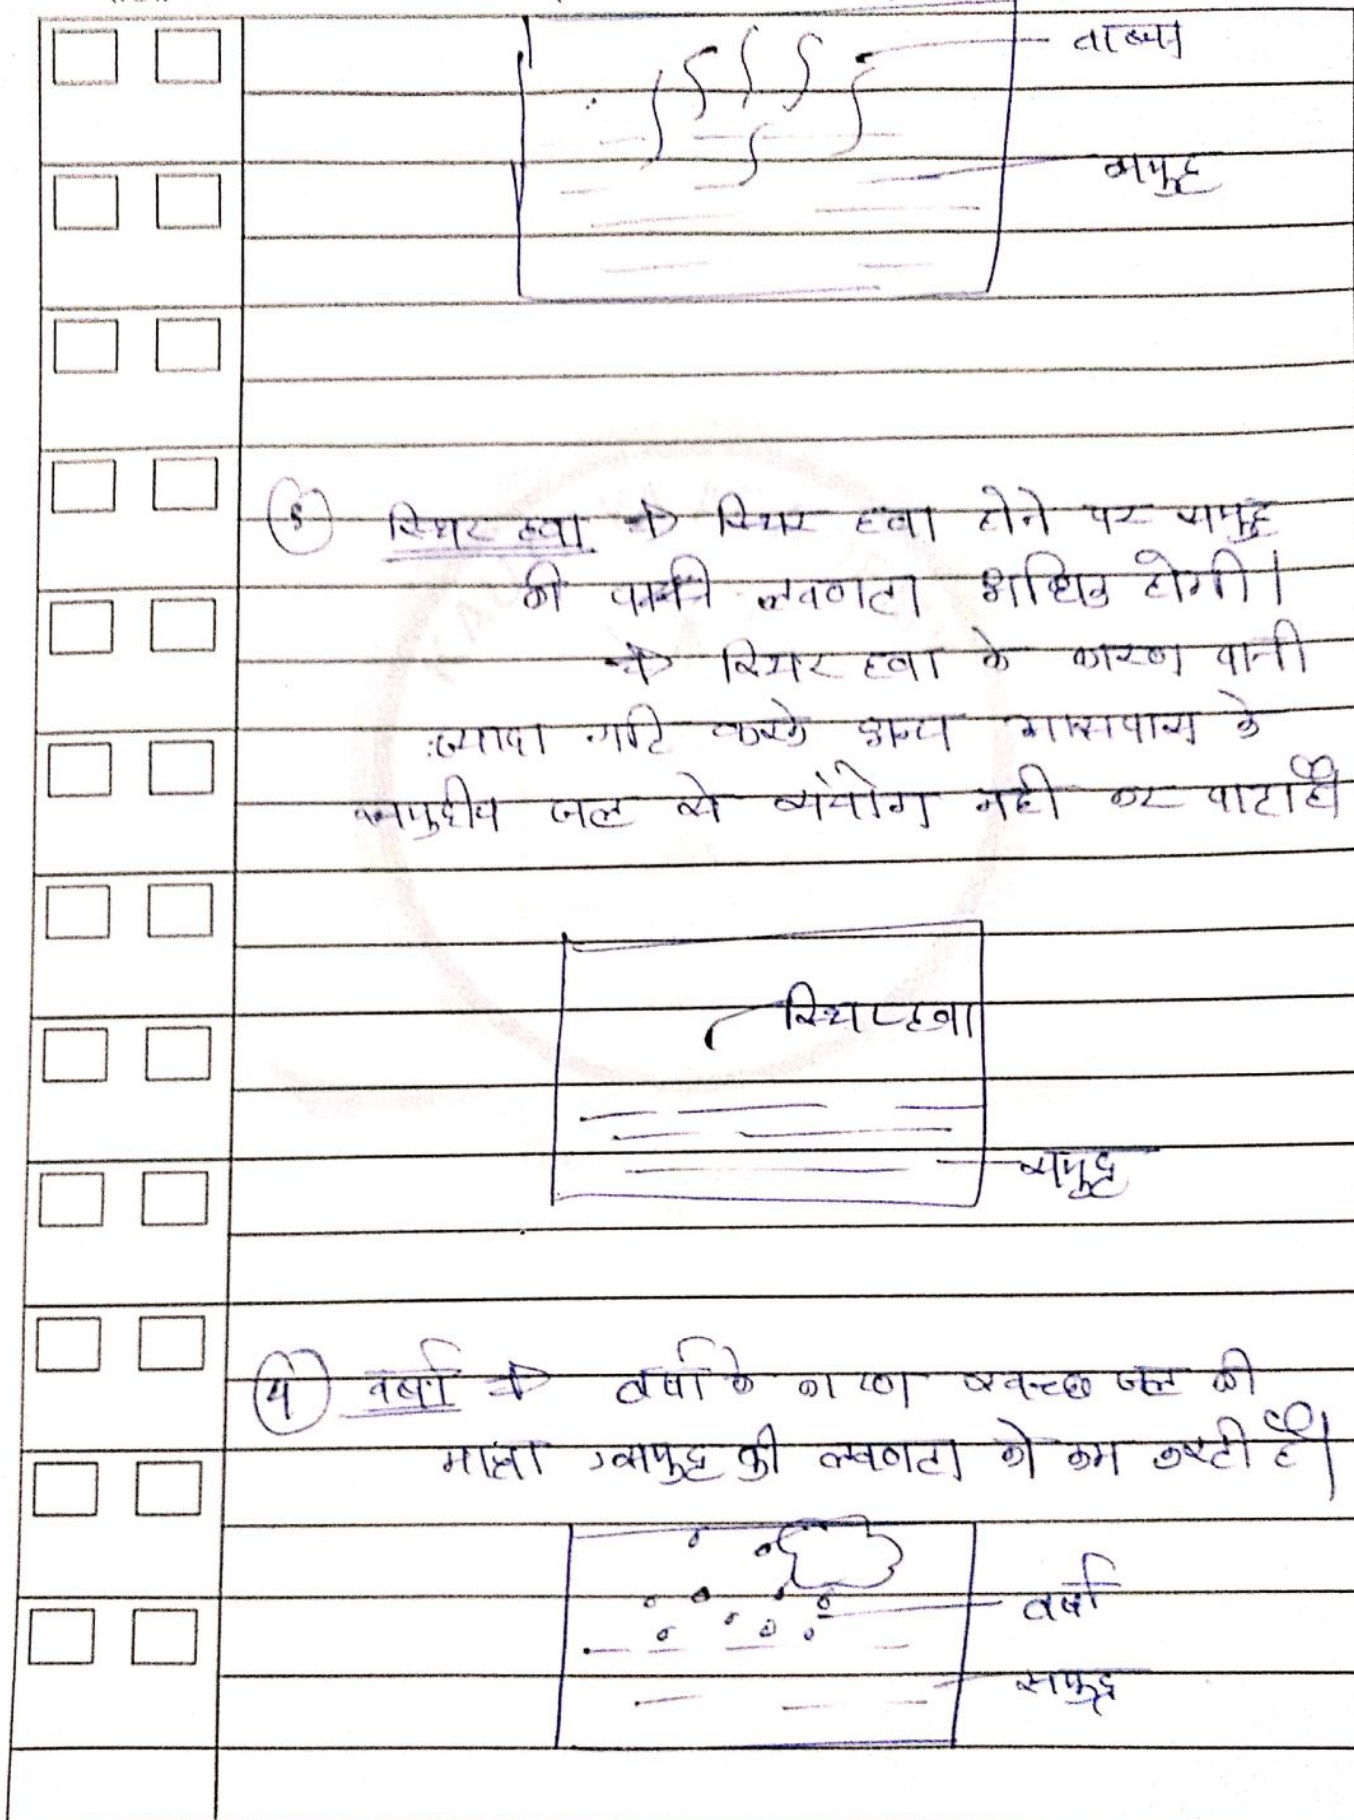 वाष्प
समुद्र
③ स्थिर हवा → स्थिर हवा होने पर समुद्र
की लवणता अधिक होगी।
→ स्थिर हवा के कारण पानी
ज्यादा गति करके अन्य आसपास के
समुद्रीय जल से संयोग नहीं कर पाता है
स्थिर हवा
समुद्र
④ वर्षा → वर्षा के कारण स्वच्छ जल की
मात्रा समुद्र की लवणता को कम करती है।
वर्षा
समुद्र